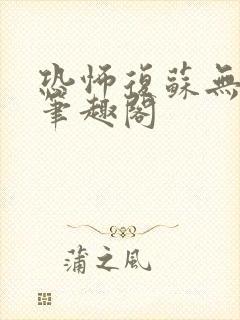 恐怖復蘇無
筆趣閣
蒲之風